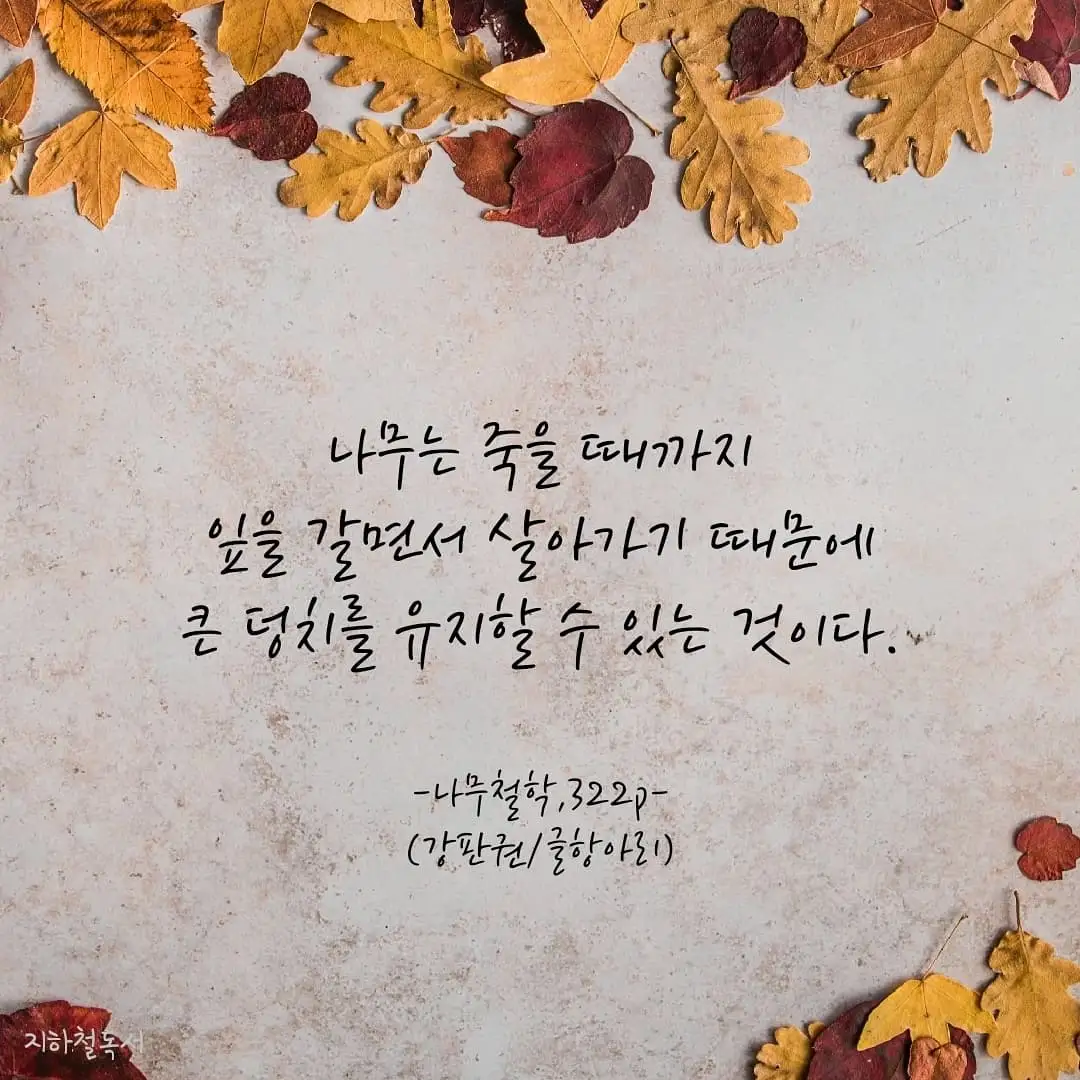 나무는 죽을 때까지
잎을 갈면서 살아가기 때문에
큰 덩치를 유지할 수 있는 것이다.
-나무철학,322p-
(강판권/글항아리)
지하철독서